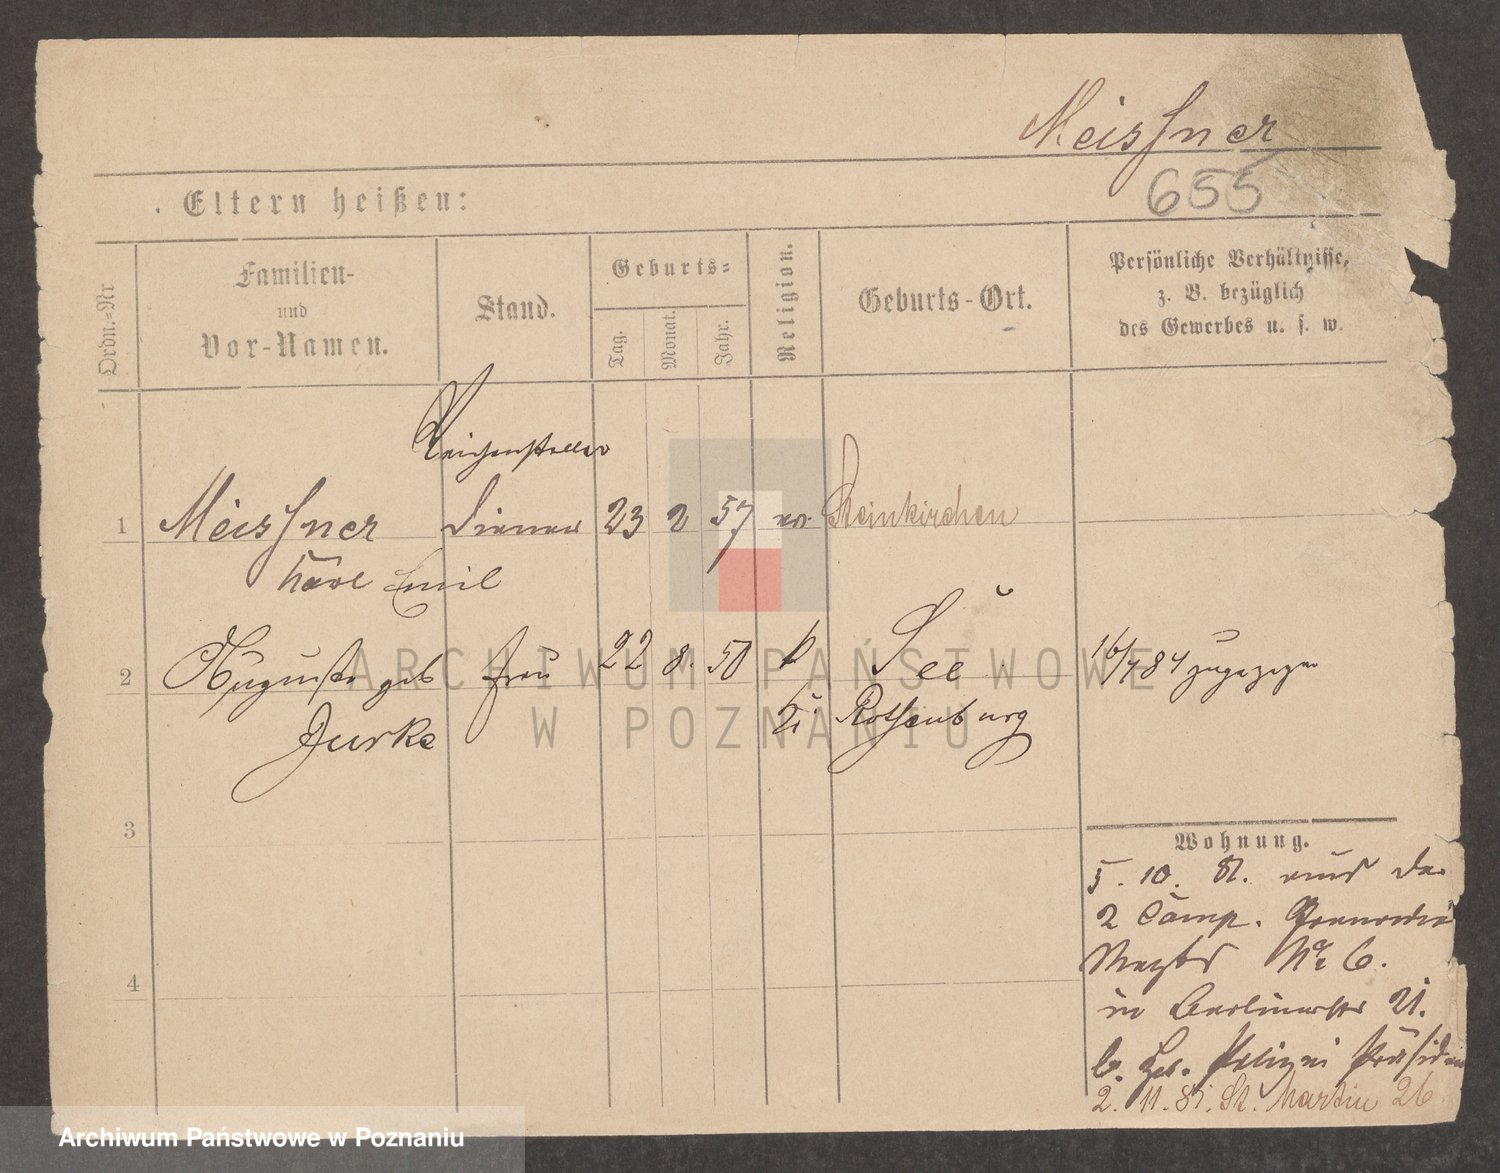 Meissner
655
. Eltern heißen:
Ordn.-Nr
Familien-
und
Vor-Namen.
Stand.
Geburts-
Tag.
Monat.
Jahr.
Religion.
Geburts-Ort.
Persönliche Verhältnisse,
z. B. bezüglich
des Gewerbes u. s. w.
Weichensteller
1 Meissner Diener 23 2 57 ev. Steinkirchen
Karl Emil
2 Auguste geb Frau 22 8. 50 k See 16/4 84 zugezogen
Jurke Rothenburg
ARCHIWUM PAŃSTWOWE
W POZNANIU
3
Wohnung.
5. 10. 81. aus der
2 Comp. Grenadier
Regts No 6.
4
in Berlinerstr 21.
b. Polizei Präsident
2. 11. 81. St. Martin 26
Archiwum Państwowe w Poznaniu